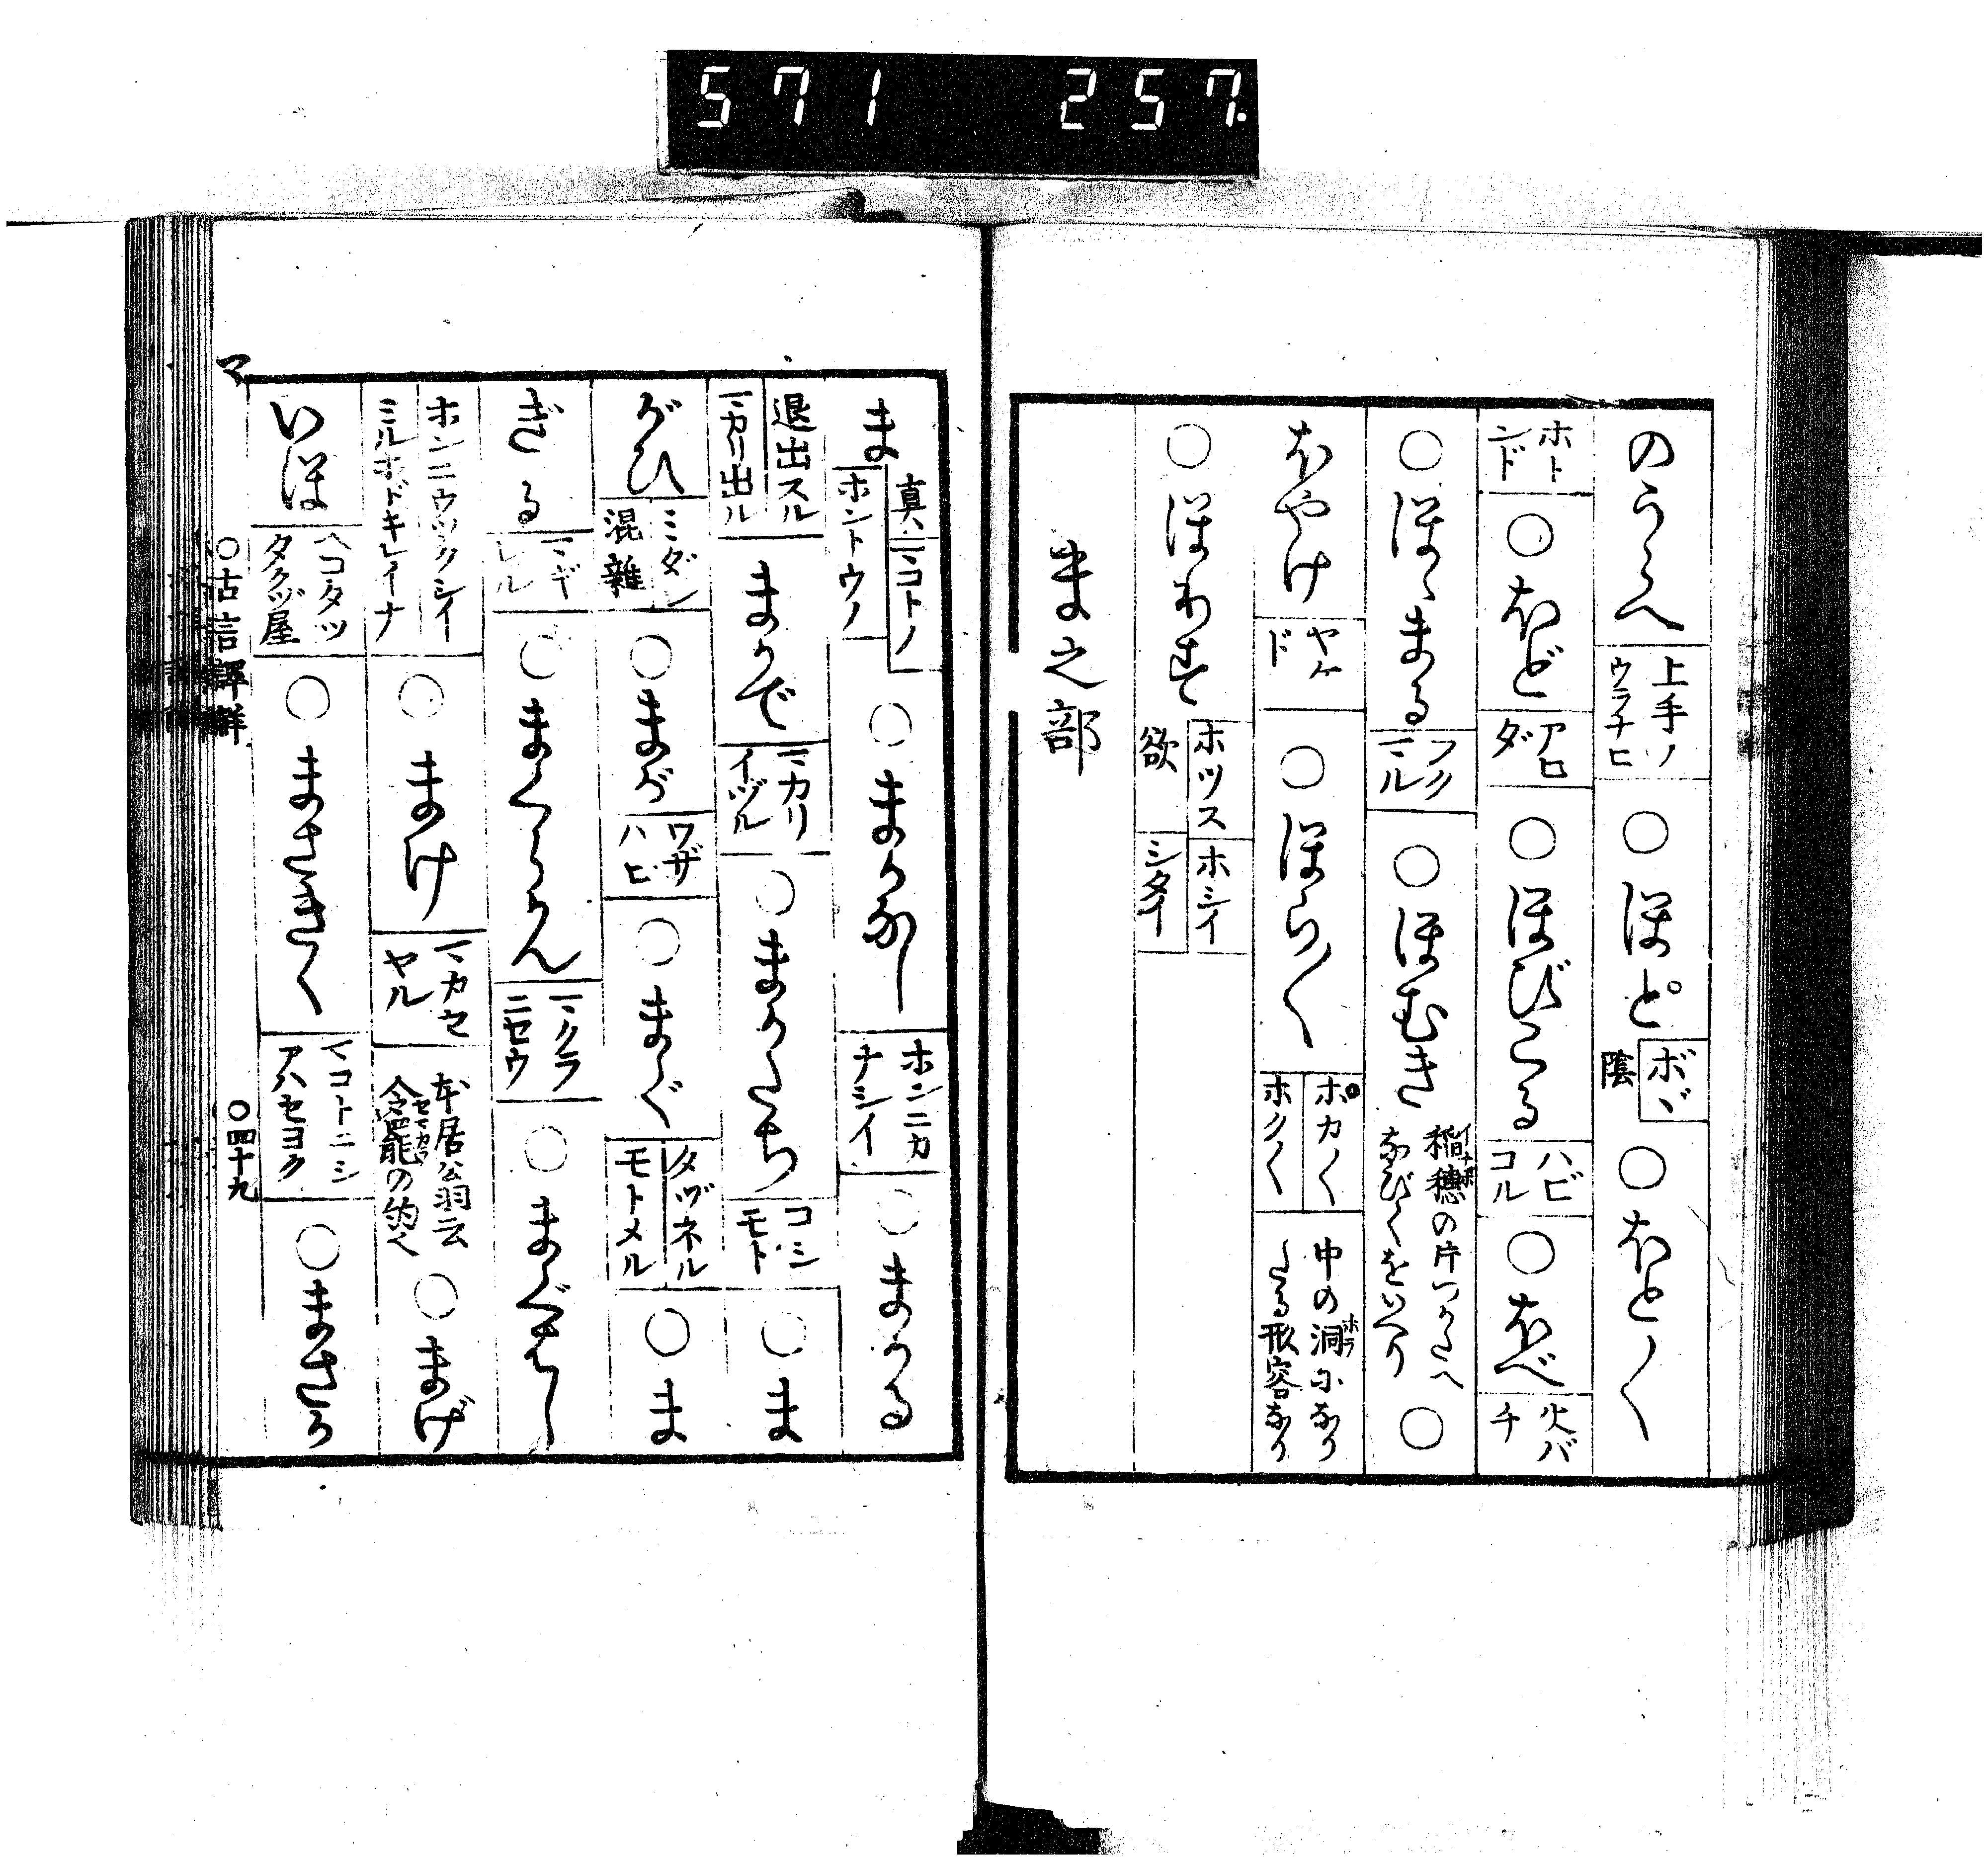 571 257.
のうへ 上手ノ ウラナヒ ○ほと ボヾ 陰 ○ほと〳〵
ホトンド ○ほど アロダ ○ほびこる ハビコル ○ほべ 火バチ
○ほゝまる フクマル ○ほむき 稲穂の片つかたへ なびくをいへり ○
ほやけ ヤケド ○ほら〳〵 ポカ〳〵 ホク〳〵 中の洞になりたる形容なり
○ほりす ホツス 欲 ホシイ シタイ
ま之部
ま 真 マコトノ ホントウノ ○まがなし ホンニカナシイ ○まかる
退出スル マカリ出ル まかで マカリイヅル ○まかたち コシモト ○ま
がひ ミダレ 混雑 ○まが ワザハヒ ○まぐ タヅネル モトメル ○ま
ぎる マギレル ○まくらかん マクラニセウ ○まぐはし
ホンニウツクシイ ミルホドキレイナ ○まけ マカセヤル 本居公羽云 令罷の約 ○まげ
いほ ヘコタツタクヅ屋 ○まさきく マコトニシアハセヨク ○まさか
マ
○古言譯觧
○四十九